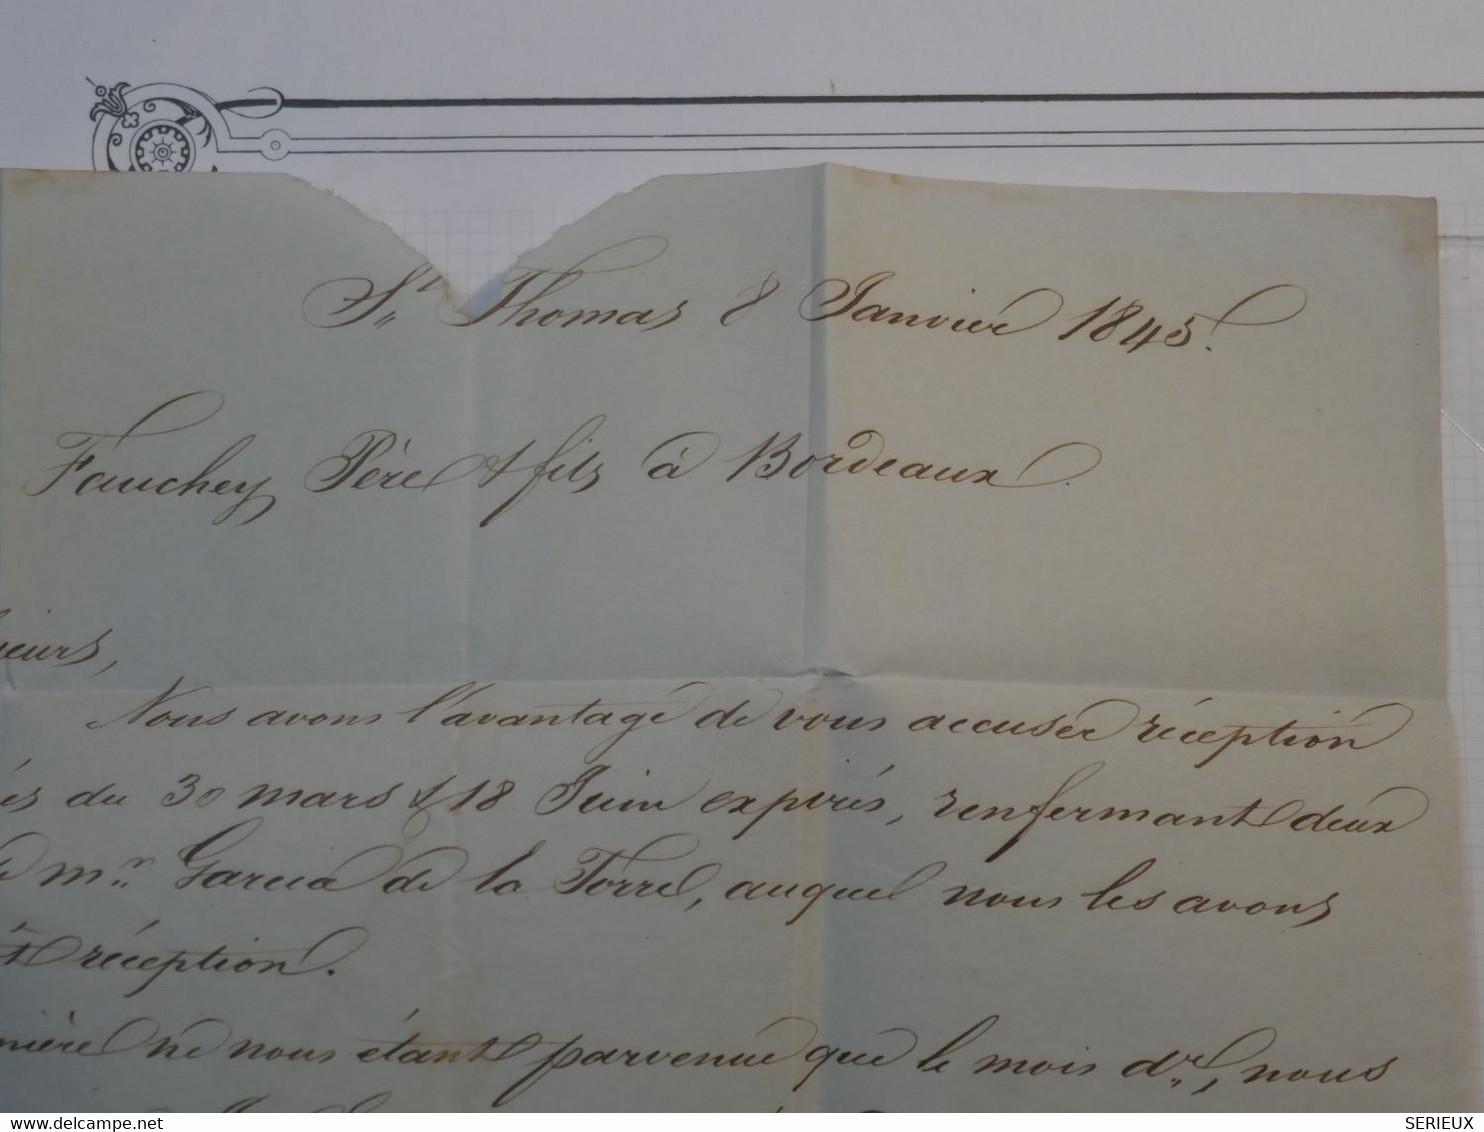 St Thomas 8 Janvier 1845.
Fauchey Père & fils à Bordeaux.
sieurs,
Nous avons l'avantage de vous accuser réception
és du 30 mars & 18 Juin expirés, renfermant deux
de mr Garcia de la Torre, auquel nous les avons
réception.
nière ne nous étant parvenue que le mois dr, nous
SERIEUX